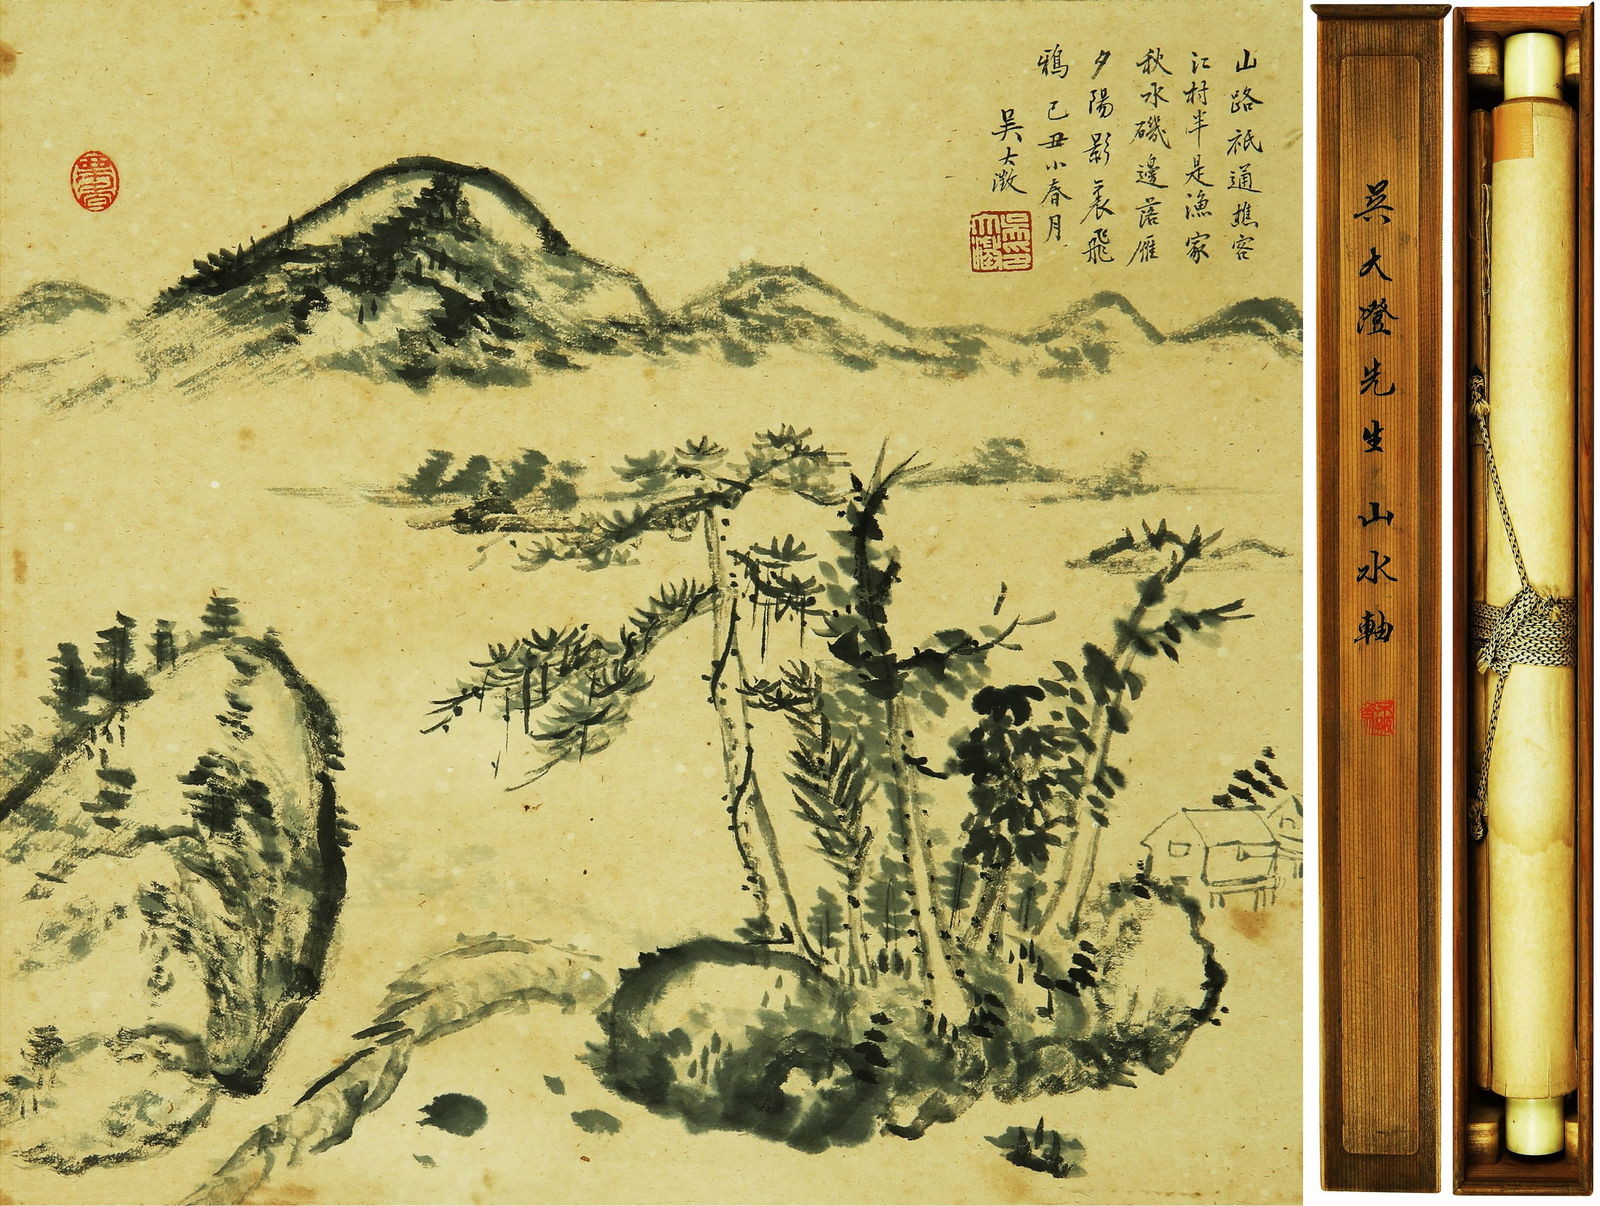 山路祇通樵客
江村半是漁家
秋水磯邊落雁
夕陽影裏飛
鴉 己丑小春月
吳大澂
吳大澄先生山水軸